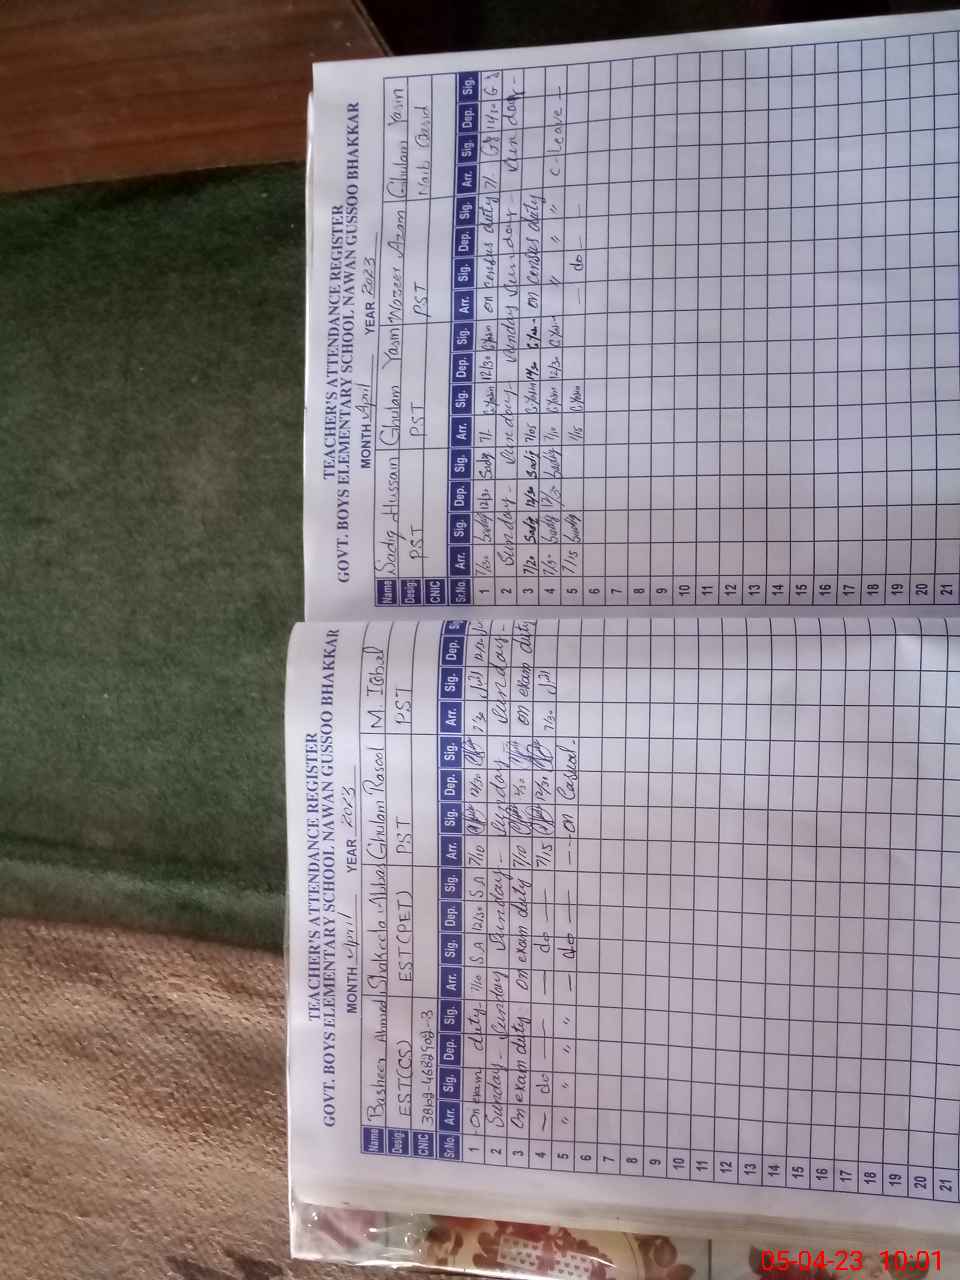 TEACHER'S ATTENDANCE REGISTER
GOVT. BOYS ELEMENTARY SCHOOL NAWAN GUSSOO BHAKKAR
MONTH April YEAR 2023
Name Basheer Ahmed Shakeela Abbas Ghulam Rasool M. Iqbal
Desig: EST(CS) EST(PET) PST PST
CNIC
Sr.No. Arr. Sig. Dep. Sig. Arr. Sig. Dep. Sig. Arr. Sig. Dep. Sig. Arr. Sig. Dep.
1 On exam duty- 7/10 S.A 12/30 S.A 7/10 12/30 7/30
2 Sunday - Sunday Sunday - Sunday - Sunday -
3 On exam duty on exam duty 7/10 on exam duty
4 — do — — do — 7/15 12/30 7/30
5 " " " — do — -- on Casual -
6
7
8
9
10
11
12
13
14
15
16
17
18
19
20
21
TEACHER'S ATTENDANCE REGISTER
GOVT. BOYS ELEMENTARY SCHOOL NAWAN GUSSOO BHAKKAR
MONTH April YEAR 2023
Name Sadiq Hussain Ghulam Yasin Wazeer Azam Ghulam Yasin
Desig: PST PST PST Naib Qasid
CNIC
Sr.No. Arr. Sig. Dep. Sig. Arr. Sig. Dep. Sig. Arr. Sig. Dep. Sig. Arr. Sig. Dep. Sig.
1 Sadiq 12/30 Sadiq 7/- G.Yasin 12/30 G.Yasin on census duty 7/-
2 Sunday - Sunday - Sunday Sunday - Sunday -
3 7/20 Sadiq 12/30 Sadiq 7/05 G.Yasin on census duty
4 Sadiq Sadiq 7/10 G.Yasin 12/30 G.Yasin " " " C-Leave -
5 7/15 Sadiq 7/15 G.Yasin — do —
6
7
8
9
10
11
12
13
14
15
16
17
18
19
20
21
05-04-23 10:01